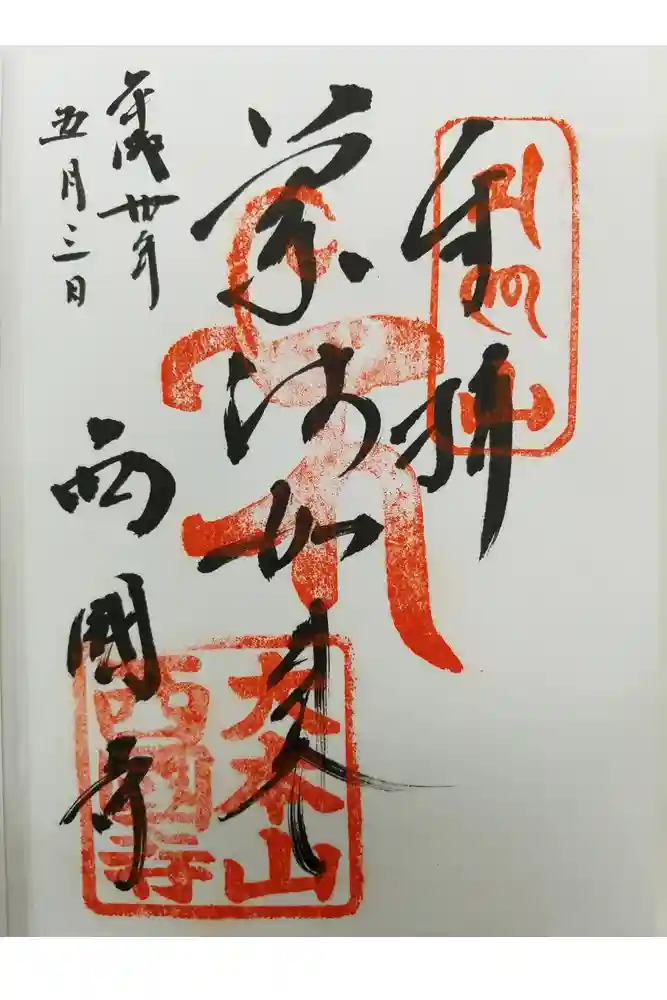 奉拝
薬師如来
平成卅年
五月三日
西國寺
大本山
西國寺